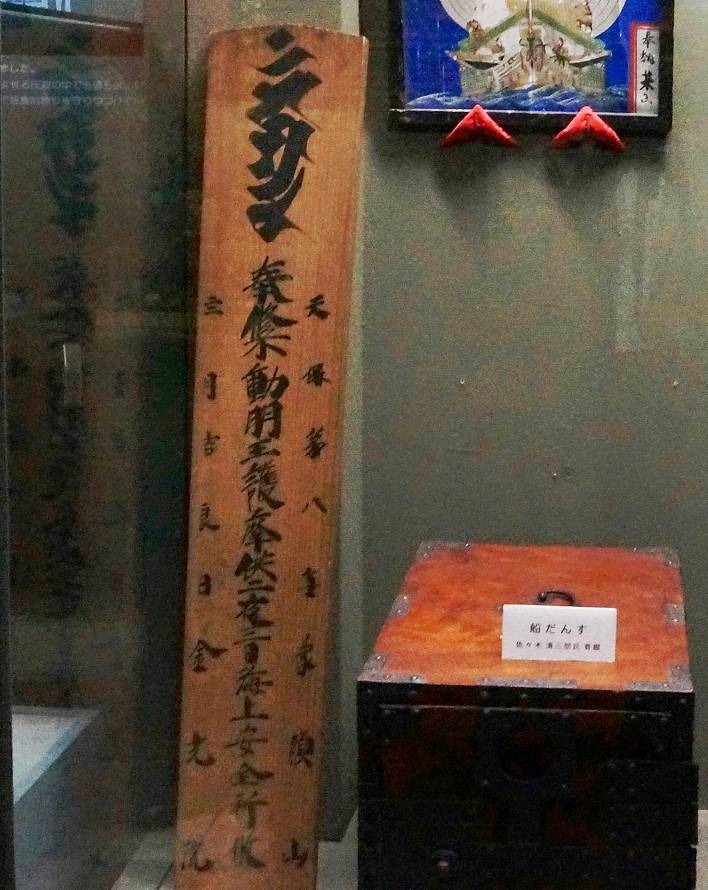 奉納
天保第八 象頭山
奉修不動明王護摩供二夜三日海上安全
三月吉良日 金光院
船だんす
佐々木 清三郎氏 寄贈
ました。